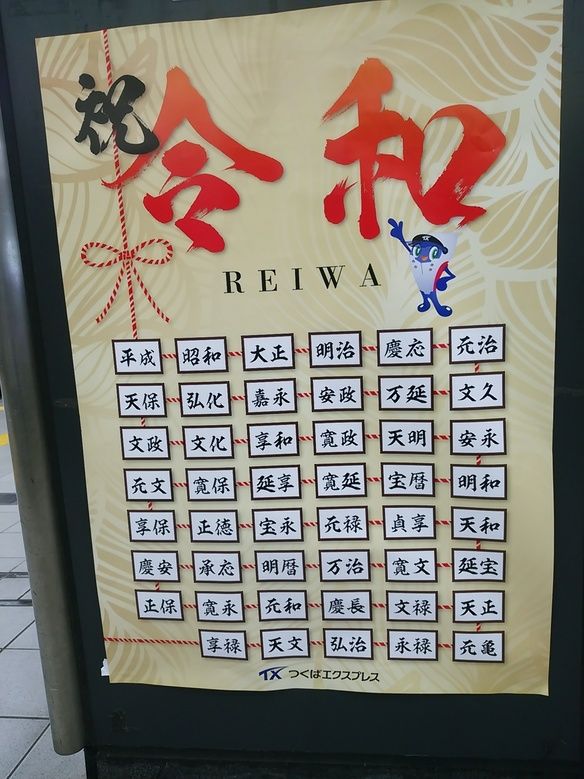 祝
令和
REIWA
TX
平成 昭和 大正 明治 慶応 元治
天保 弘化 嘉永 安政 万延 文久
文政 文化 享和 寛政 天明 安永
元文 寛保 延享 寛延 宝暦 明和
享保 正徳 宝永 元禄 貞享 天和
慶安 承応 明暦 万治 寛文 延宝
正保 寛永 元和 慶長 文禄 天正
享禄 天文 弘治 永禄 元亀
TX つくばエクスプレス